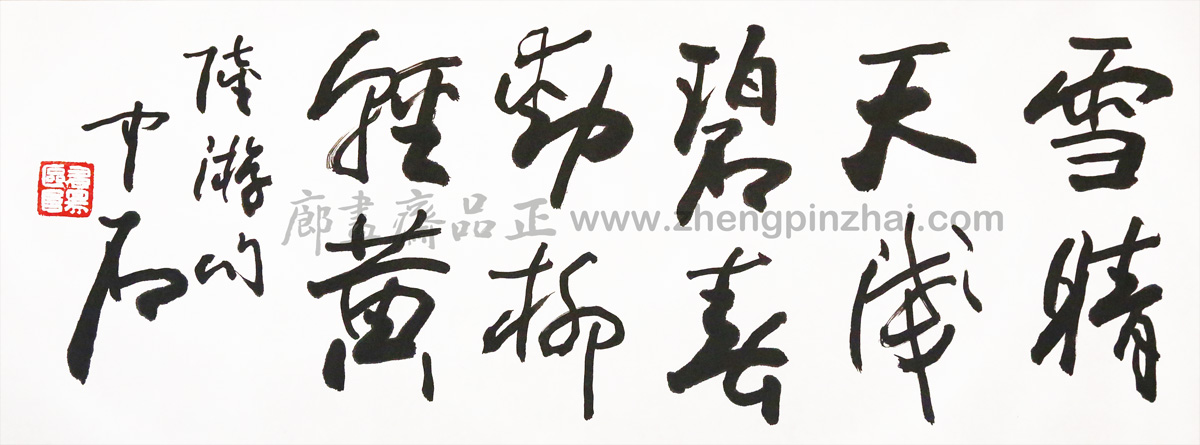 雪晴
天淺
碧春
動柳
輕黄
陸游句
中石
正品齋畫廊 www.zhengpinzhai.com